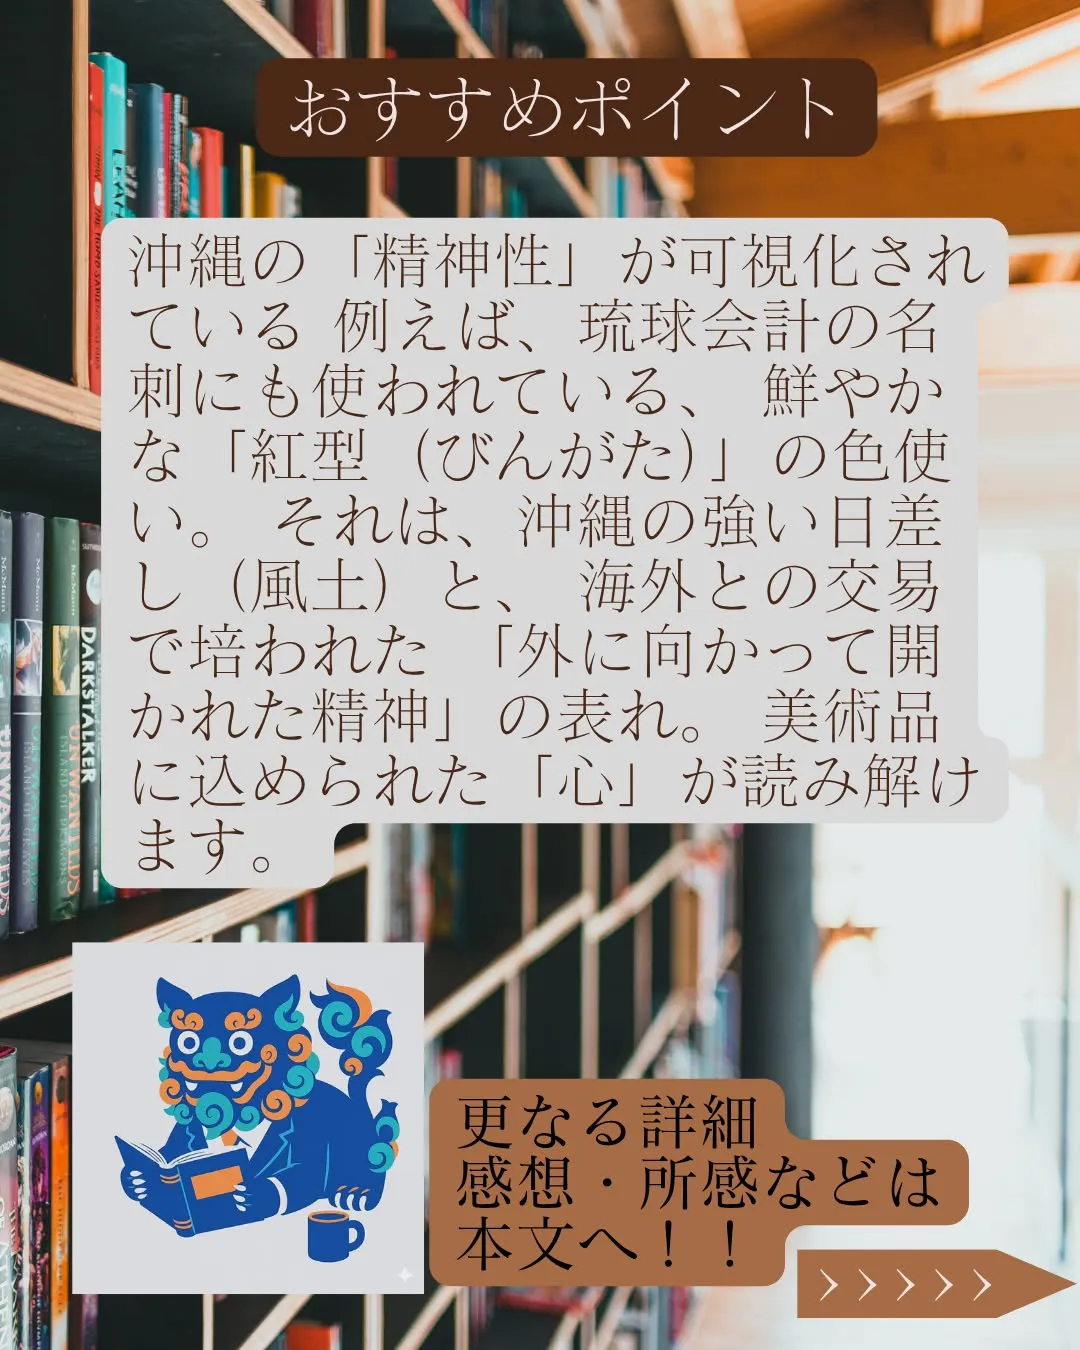 おすすめポイント
沖縄の「精神性」が可視化され
ている 例えば、琉球会計の名
刺にも使われている、 鮮やか
な「紅型（びんがた）」の色使
い。 それは、沖縄の強い日差
し（風土）と、 海外との交易
で培われた 「外に向かって開
かれた精神」の表れ。 美術品
に込められた「心」が読み解け
ます。
更なる詳細
感想・所感などは
本文へ！！
DARKSTALKER
UNWANTEDS
ISLAND OF DRAGONS
UNWANTEDS